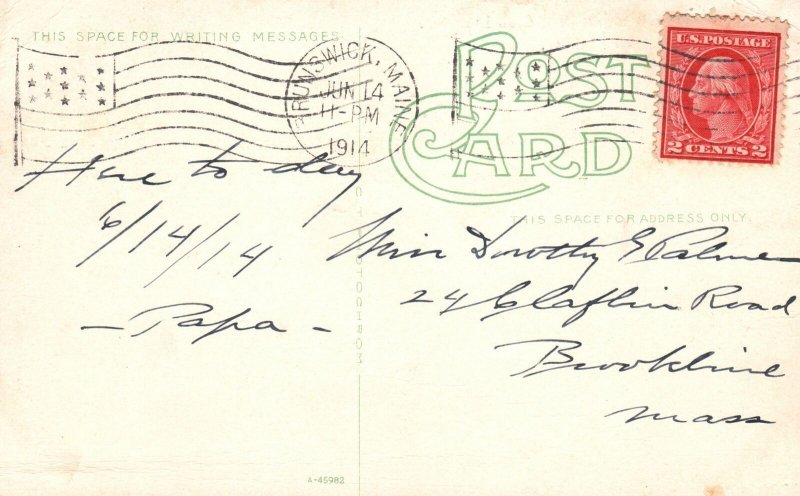 THIS SPACE FOR WRITING MESSAGES
BRUNSWICK, MAINE
JUN 14
11-PM
1914
POST CARD
U.S. POSTAGE
2 CENTS 2
THIS SPACE FOR ADDRESS ONLY.
Here to day
6/14/14
- Papa -
Miss Dorothy G Palmer
24 Claflin Road
Brookline
Mass
A-45982